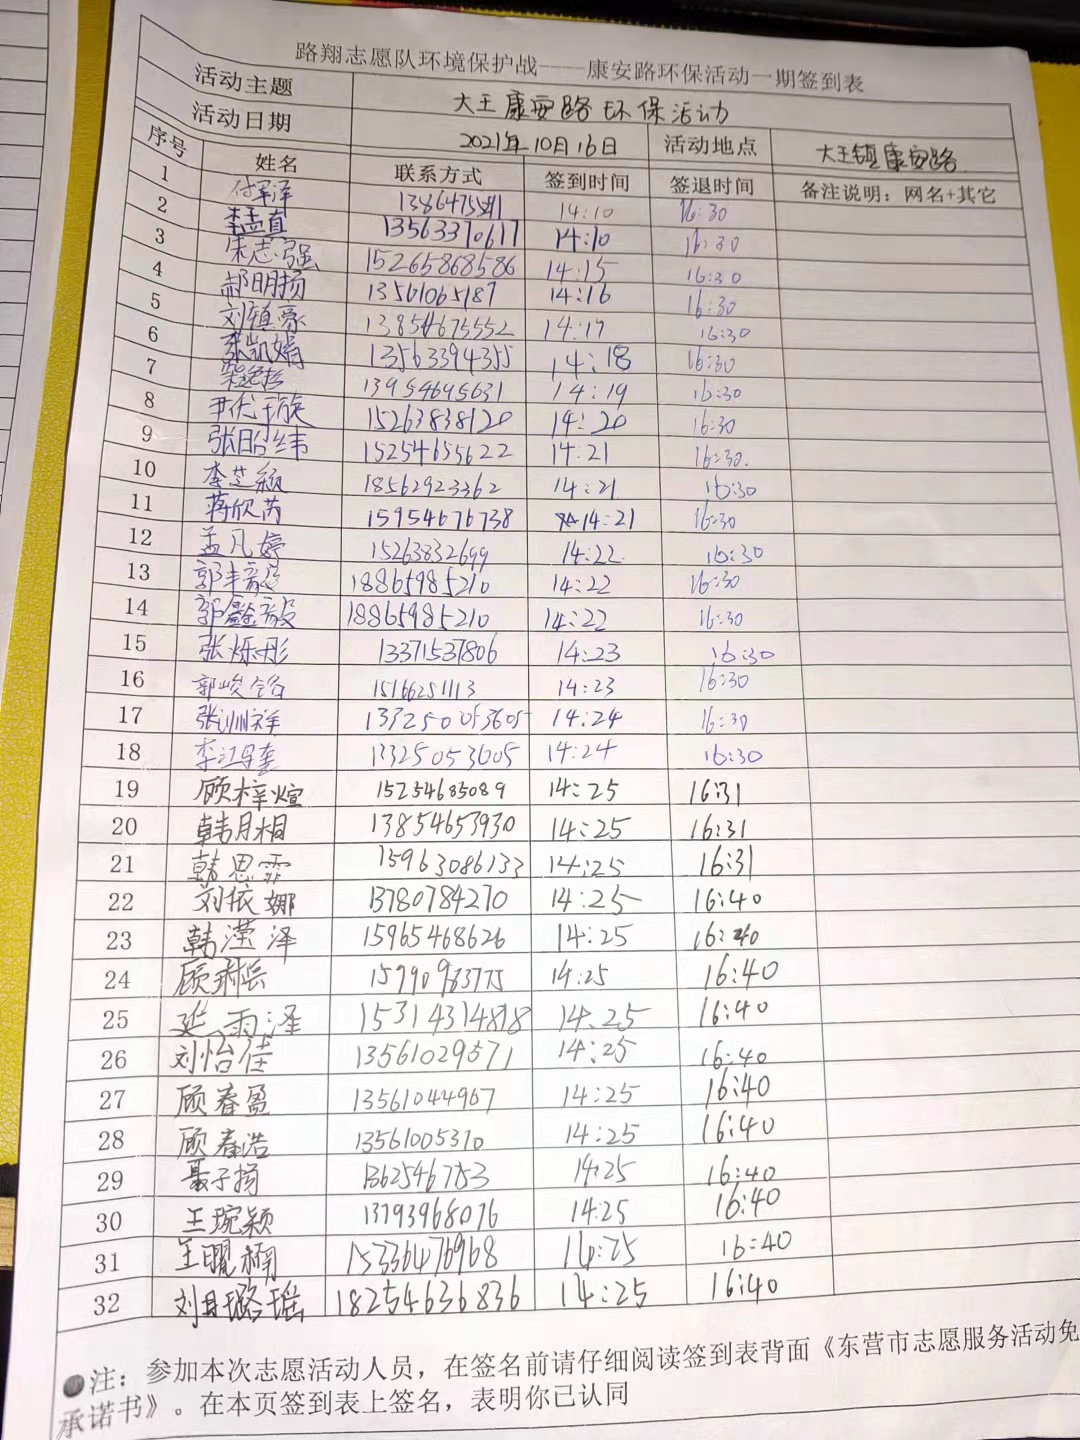 路翔志愿队环境保护战——康安路环保活动一期签到表
活动主题 大王康安路环保活动
活动日期 2021年10月16日 活动地点 大王镇康安路
序号 姓名 联系方式 签到时间 签退时间 备注说明：网名+其它
1 14:10 16:30
2 李孟直 13563370617 14:10 16:30
3 宋志强 15265868586 14:15 16:30
4 郝明扬 13561065187 14:16 16:30
5 刘镇豪 13854675552 14:17 16:30
6 张凯娟 13563394355 14:18 16:30
7 13954695631 14:19 16:30
8 15263838120 14:20 16:30
9 张昭纬 15254655622 14:21 16:30.
10 李芝颖 18562923362 14:21 16:30
11 蒋欣芮 15954676738 14:21 16:30
12 孟凡婷 15263832699 14:22 16:30
13 18865985210 14:22 16:30
14 18865985210 14:22 16:30
15 张烁彤 13371537806 14:23 16:30
16 郭峻铭 15166251113 14:23 16:30
17 14:24 16:30
18 13325053605 14:24 16:30
19 顾梓煊 15254685089 14:25 16:31
20 韩月桐 13854653930 14:25 16:31
21 韩思霏 15963086133 14:25 16:31
22 刘依娜 13780784270 14:25 16:40
23 韩滢泽 15965468626 14:25 16:40
24 14:25 16:40
25 延雨泽 15314314818 14:25 16:40
26 刘怡佳 13561029571 14:25 16:40
27 顾春盈 13561044967 14:25 16:40
28 顾春浩 13561005310 14:25 16:40
29 聂子扬 14:25 16:40
30 王琬颖 13793968076 14:25 16:40
31 王曜楠 15336476968 14:25 16:40
32 18254636836 14:25 16:40
注：参加本次志愿活动人员，在签名前请仔细阅读签到表背面《东营市志愿服务活动免
承诺书》。在本页签到表上签名，表明你已认同